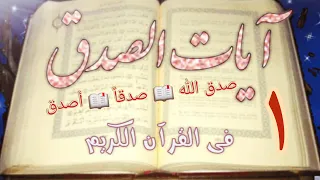 آيات الصدق
صدق الله 📖 صدقاً 📖 أصدق
فى القرآن الكريم
١